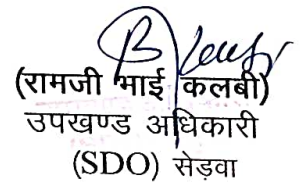 (रामजी भाई कलबी)
उपखण्ड अधिकारी
(SDO) सेड़वा